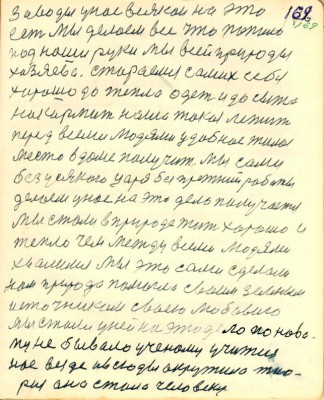 169
заводы у нас всякои на это
есть мы делаем все что попало
под наши руки мы всей природы
хозяева. стараемся самих себя
хорошо до тепла одет и до сыта
накормит наша такая
перед всеми людями удобное жилое
место в доме получит. мы сами
без усякого царя без прежней работы
делаем у нас на это дело получается
мы стали в природе жит хорошо и
тепло чем между всеми людями
хвалимся мы это сами сделали
нам природа помогла своим
источником своею любовию
мы стали у ней на это дело по ново-
му не бывало ученому учится
нас везде и всюды окружила тио-
рия она стала человеку